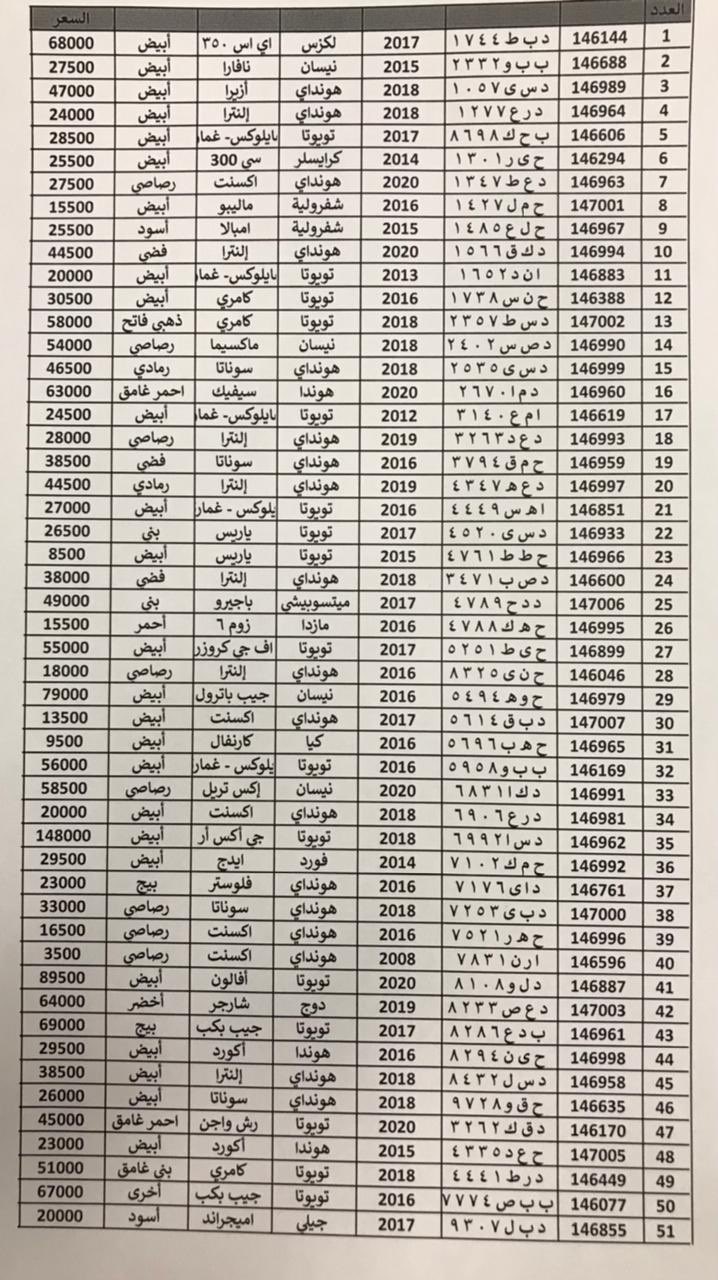 العدد السعر
1 146144 د ب ط ١٧٤٤ 2017 لكزس اي اس ٣٥٠ أبيض 68000
2 146688 ب ب و ٢٣٣٢ 2015 نيسان نافارا أبيض 27500
3 146989 د س ى ١٠٥٧ 2018 هونداي أزيرا أبيض 47000
4 146964 د ر ع ١٢٧٧ 2018 هونداي إلنترا أبيض 24000
5 146606 ب ح ك ٨٦٩٨ 2017 تويوتا بايلوكس- غمار أبيض 28500
6 146294 ح ى ر ١٣٠١ 2014 كرايسلر سي 300 أبيض 25500
7 146963 د ع ط ١٣٤٧ 2020 هونداي اكسنت رصاصي 27500
8 147001 ح م ل ١٤٢٧ 2016 شفرولية ماليبو أبيض 15500
9 146967 ح ل ع ١٤٨٥ 2015 شفرولية امبالا أسود 25500
10 146994 د ك ق ١٥٦٦ 2020 هونداي إلنترا فضي 44500
11 146883 ا ن د ١٦٥٢ 2013 تويوتا بايلوكس- غمار أبيض 20000
12 146388 ح ن س ١٧٣٨ 2016 تويوتا كامري أبيض 30500
13 147002 د س ط ٢٣٥٧ 2018 تويوتا كامري ذهبي فاتح 58000
14 146990 د ص س ٢٤٠٢ 2018 نيسان ماكسيما رصاصي 54000
15 146999 د س ى ٢٥٣٥ 2018 هونداي سوناتا رمادي 46500
16 146960 د م ا ٢٦٧٠ 2020 هوندا سيفيك احمر غامق 63000
17 146619 ا م ع ٣١٤٠ 2012 تويوتا بايلوكس- غمار أبيض 24500
18 146993 د ع د ٣٢٦٣ 2019 هونداي إلنترا رصاصي 28000
19 146959 ح م ق ٣٧٩٤ 2016 هونداي سوناتا فضي 38500
20 146997 د ع ه ٤٣٤٧ 2019 هونداي إلنترا رمادي 44500
21 146851 ا ه س ٤٤٤٩ 2016 تويوتا يلوكس - غمار أبيض 27000
22 146933 د س ى ٤٥٢٠ 2017 تويوتا ياريس بني 26500
23 146966 ح ط ط ٤٧٦١ 2015 تويوتا ياريس أبيض 8500
24 146600 د ص ب ٣٤٧١ 2018 هونداي إلنترا فضي 38000
25 147006 د د ح ٤٧٨٩ 2017 ميتسوبيشي باجيرو بني 49000
26 146995 ح ه ك ٤٧٨٨ 2016 مازدا زوم ٦ أحمر 15500
27 146899 ح ى ط ٥٢٥١ 2017 تويوتا اف جي كروزر أبيض 55000
28 146046 ح ن ى ٨٣٢٥ 2016 هونداي إلنترا رصاصي 18000
29 146979 ح و ه ٥٤٩٤ 2016 نيسان جيب باترول أبيض 79000
30 147007 د ب ق ٥٦١٤ 2017 هونداي اكسنت أبيض 13500
31 146965 ح ه ب ٥٦٩٦ 2016 كيا كارنفال أبيض 9500
32 146169 ب ب و ٥٩٥٨ 2016 تويوتا يلوكس - غمار أبيض 56000
33 146991 د ك ا ٦٨٣١ 2020 نيسان إكس تريل رصاصي 58500
34 146981 د ر ع ٦٩٠٦ 2018 هونداي اكسنت أبيض 20000
35 146962 د س ا ٦٩٩٢ 2018 تويوتا جي أكس أر أبيض 148000
36 146992 ح م ك ٧١٠٢ 2014 فورد ايدج أبيض 29500
37 146761 د ا ى ٧١٧٦ 2016 هونداي فلوستر بيج 23000
38 147000 د ب ى ٧٢٥٣ 2018 هونداي سوناتا رصاصي 33000
39 146996 ح ه ر ٧٥٢١ 2016 هونداي اكسنت رصاصي 16500
40 146596 ا ر ن ٧٨٣١ 2008 هونداي اكسنت رصاصي 3500
41 146887 د ل و ٨١٠٨ 2020 تويوتا أفالون أبيض 89500
42 147003 د ع ص ٨٢٣٣ 2019 دوج شارجر أخضر 64000
43 146961 ب د ع ٨٢٨٦ 2017 تويوتا جيب بكب بيج 69000
44 146998 ح ى ن ٨٢٩٤ 2016 هوندا أكورد أبيض 29500
45 146958 د س ل ٨٤٣٢ 2018 هونداي إلنترا أبيض 38500
46 146635 ح ق و ٩٧٢٨ 2018 هونداي سوناتا أبيض 26000
47 146170 د ق ك ٣٢٦٢ 2020 تويوتا رش واجن احمر غامق 45000
48 147005 ح ع د ٤٣٣٥ 2015 هوندا أكورد أبيض 23000
49 146449 د ر ط ٤٤٤١ 2018 تويوتا كامري بني غامق 51000
50 146077 ب ب ص ٧٧٧٤ 2016 تويوتا جيب بكب أخرى 67000
51 146855 د ب ل ٩٣٠٧ 2017 جيلي اميجراند أسود 20000